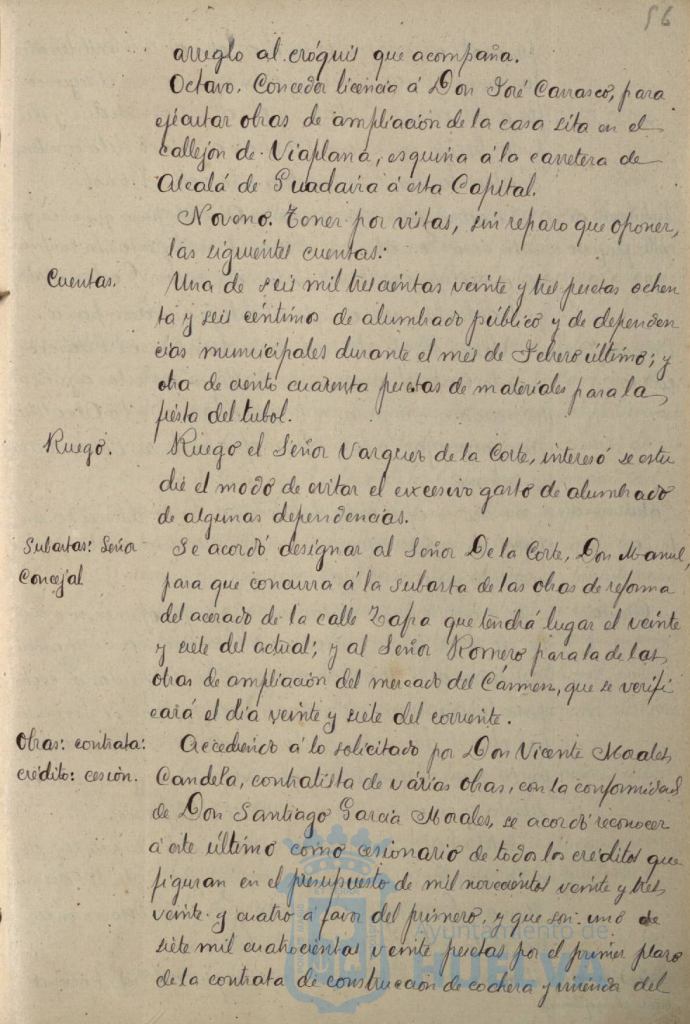 56
arreglo al cróquis que acompaña.
Octavo. Conceder licencia á Don José Carrasco, para
ejecutar obras de ampliación de la casa sita en el
callejón de Viaplana, esquina á la carretera de
Alcalá de Guadaira á esta Capital.
Noveno. Tener por vistas, sin reparo que oponer,
las siguientes cuentas:
Cuentas.
Una de seis mil trescientas veinte y tres pesetas ochen
ta y seis céntimos de alumbrado público y de dependen
cias municipales durante el mes de Febrero último; y
otra de ciento cuarenta pesetas de materiales para la
fiesta del
Ruego.
Ruego el Señor Vazquez de la Corte, interesó se estu
die el modo de evitar el excesivo gasto de alumbrado
de algunas dependencias.
Subastas: Señor
Concejal
Se acordó designar al Señor De la Corte, Don Manuel,
para que concurra á la subasta de las obras de reforma
del acerado de la calle Zafra que tendrá lugar el veinte
y siete del actual; y al Señor Romero para la de las
obras de ampliación del mercado del Cármen, que se verifi
cará el dia veinte y siete del corriente.
Obras: contrata:
crédito: cesión.
Accediendo á lo solicitado por Don Vicente Morales
Candela, contratista de várias obras, con la conformidad
de Don Santiago García Morales, se acordó reconocer
á este último como cesionario de todos los créditos que
figuran en el presupuesto de mil novecientos veinte y tres
veinte y cuatro á favor del primero, y que son: uno de
siete mil cuatrocientas veinte pesetas por el primer plazo
de la contrata de construcción de cochera y vivienda del
Ayuntamiento de
HUELVA